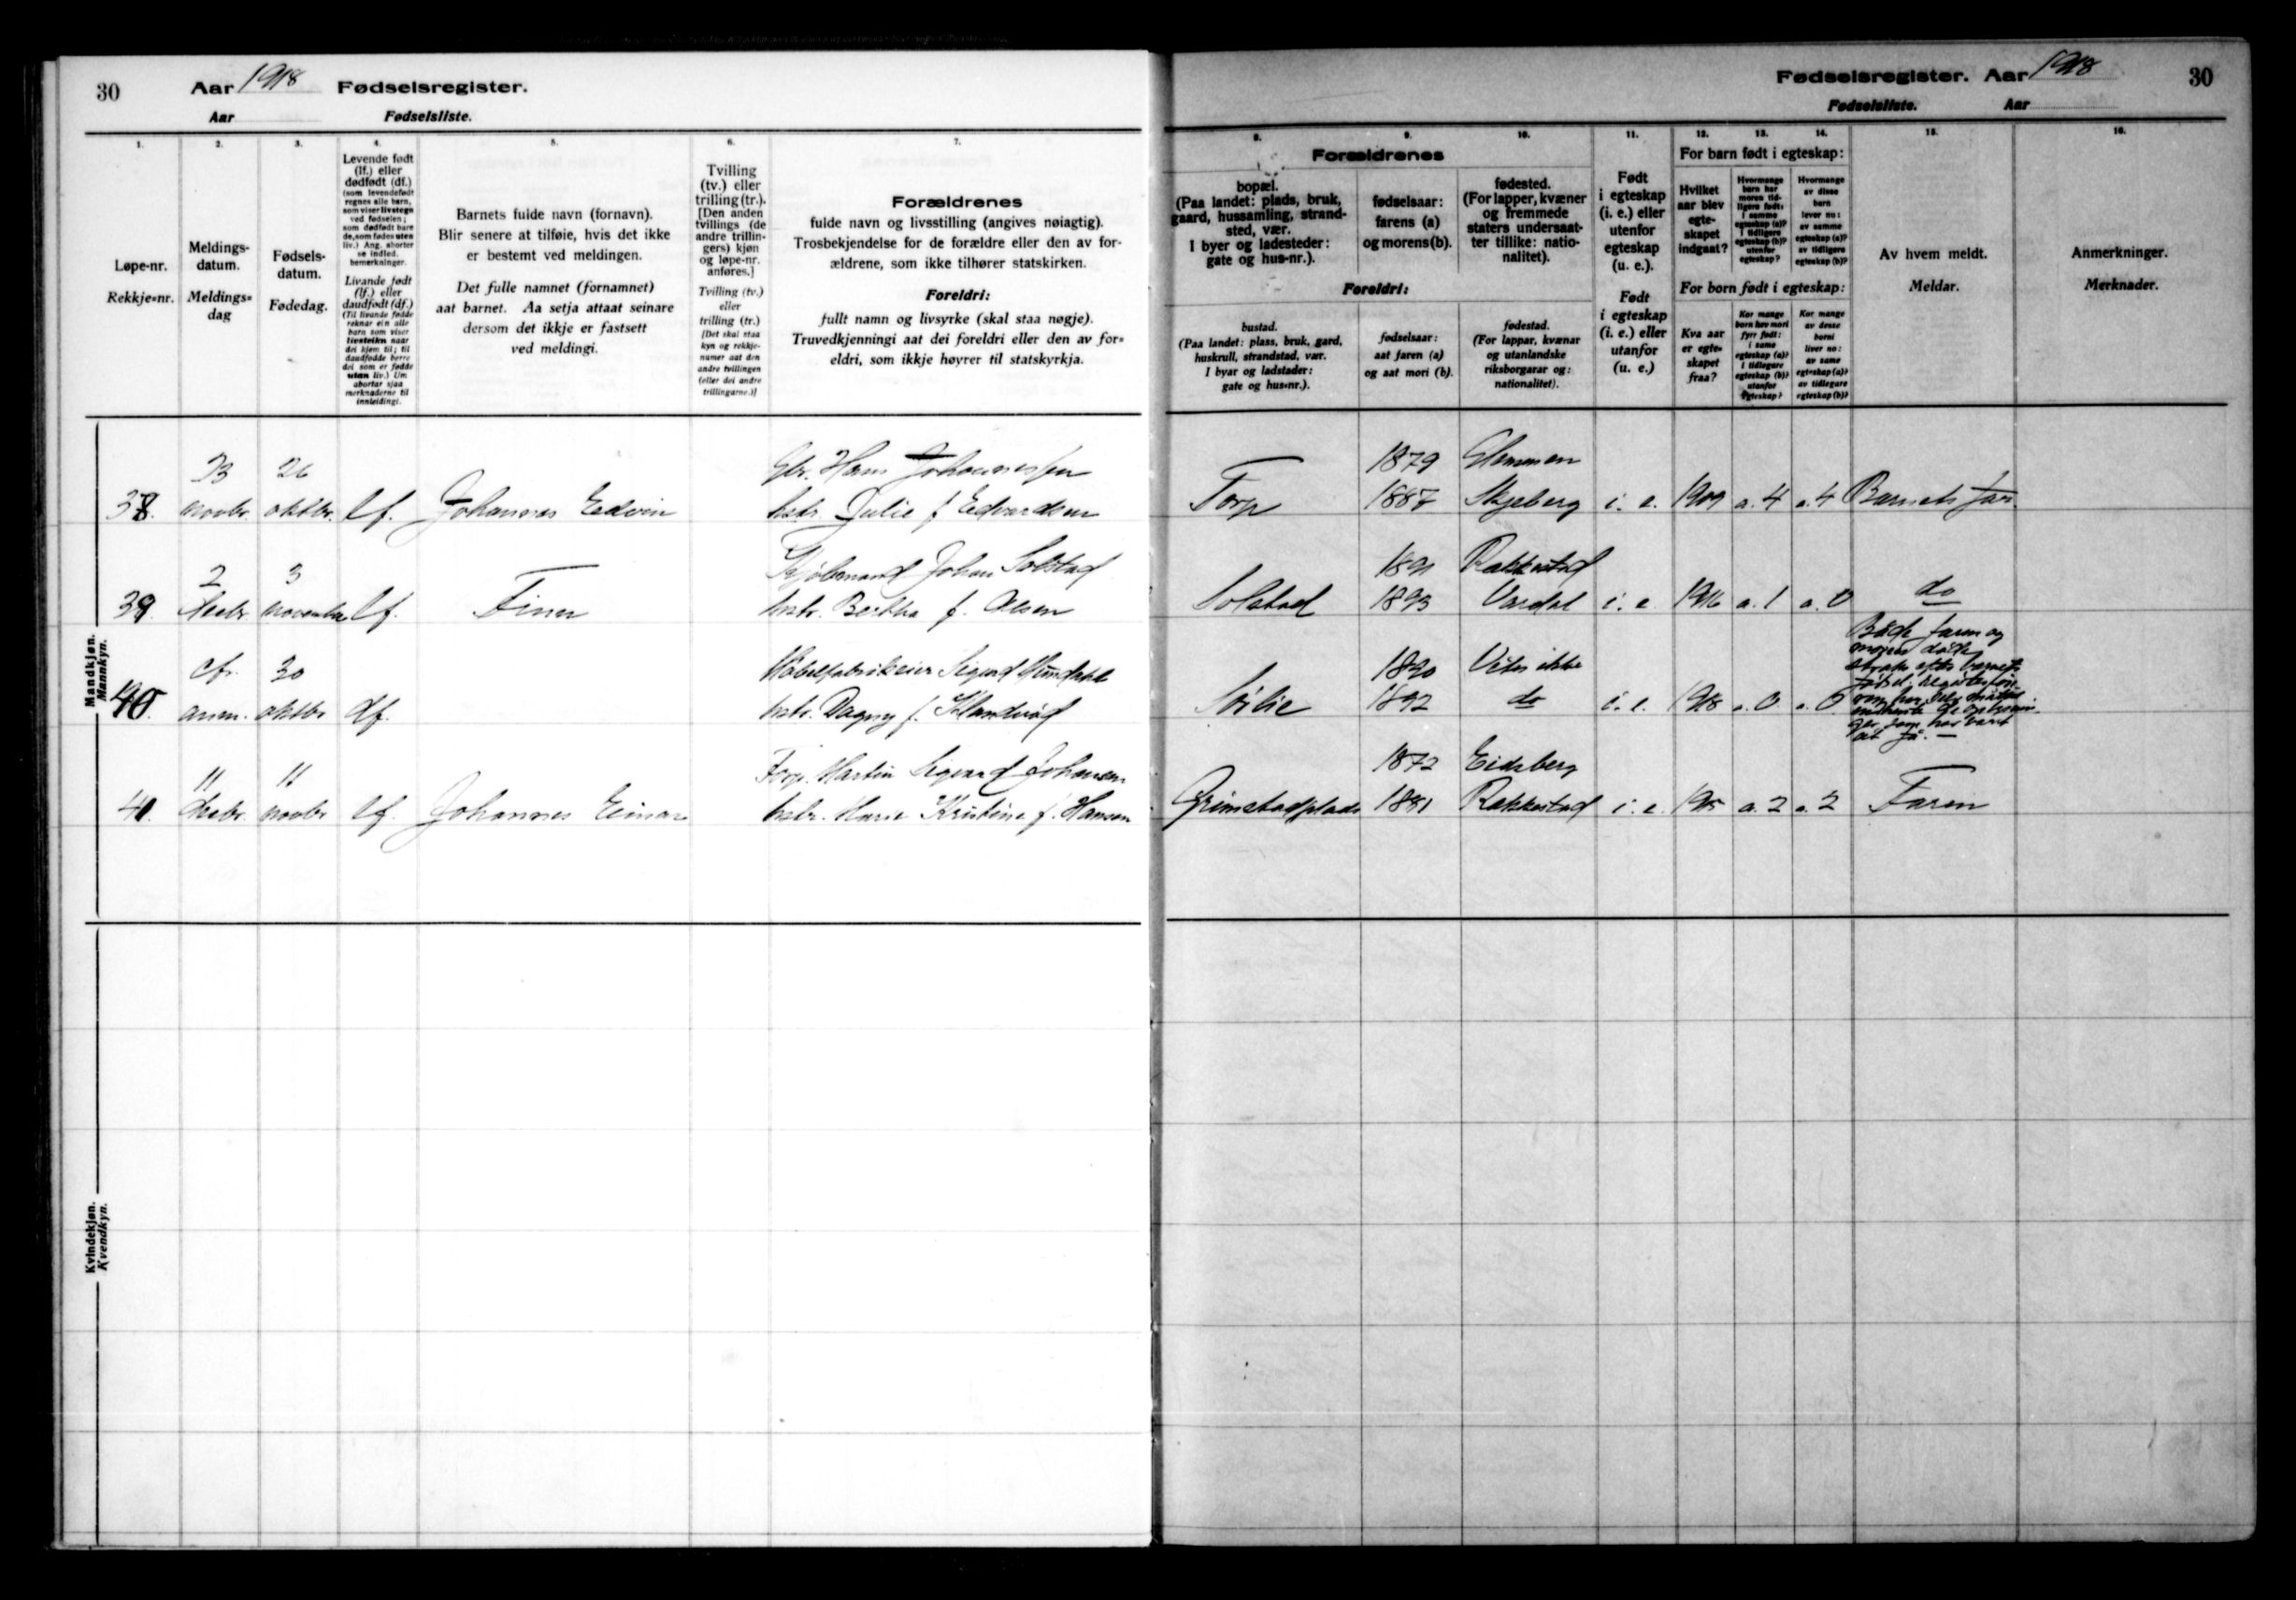 30
Aar 1918 Fødselsregister.
Aar Fødselsliste.
1.
2.
3.
4.
5.
6.
7.
Løpe-nr.
Rekkje=nr.
Meldings-
datum.
Meldings=
dag
Fødsels-
datum.
Fødedag.
Levende født
(lf.) eller
dødfødt (df.)
(som levendefødt
regnes alle børn,
som viser livstegn
ved fødselen;
som dødfødt bare
de, som fødes uten
liv.) Ang. aborter
se indled.
bemerkninger.
Livande født
(lf.) eller
daudfødt (df.)
(Til livande fødde
reknar ein alle
barn som viser
livsteikn naar
dei kjem til; til
daudfødde berre
dei som er fødde
utan liv.) Um
abortar sjaa
merknaderne til
innleidingi.
Barnets fulde navn (fornavn).
Blir senere at tilføie, hvis det ikke
er bestemt ved meldingen.
Det fulle namnet (fornamnet)
aat barnet. Aa setja attaat seinare
dersom det ikkje er fastsett
ved meldingi.
Tvilling
(tv.) eller
trilling (tr.).
[Den anden
tvillings (de
andre trillin-
gers) kjøn
og løpe-nr.
anføres.]
Tvilling (tv.)
eller
trilling (tr.)
[Det skal staa
kyn og rekkje-
numer aat den
andre tvillingen
(eller dei andre
trillingarne.)]
Forældrenes
fulde navn og livsstilling (angives nøiagtig).
Trosbekjendelse for de forældre eller den av for-
ældrene, som ikke tilhører statskirken.
Foreldri:
fullt namn og livsyrke (skal staa nøgje).
Truvedkjenningi aat dei foreldri eller den av for=
eldri, som ikkje høyrer til statskyrkja.
Mandkjøn.
Mannkyn.
38. 23 novbr. 26 oktbr. lf. Johannes Edvin
Gbr. Hans Johannessen
hstr. Julie f. Edvardsen
39. 2 decbr. 3 novembr. lf. Finn
Kjøbmand Johan Solstad
hstr. Bertha f. Olsen
40. cfr. anm. 30 oktbr df.
Møbelfabrikeier Sigurd
hstr. Dagny f.
41. 11 decbr. 11 novbr lf. Johannes Einar
Forp. Martin Sigvard Johansen
hstr. Marie Kristine f. Hansen
Kvindekjøn.
Kvendkyn.
Fødselsregister. Aar 1918
30
Fødselsliste. Aar
8.
9.
10.
11.
12.
13.
14.
15.
16.
Forældrenes
bopæl.
(Paa landet: plads, bruk,
gaard, hussamling, strand-
sted, vær.
I byer og ladesteder:
gate og hus-nr.).
fødselsaar:
farens (a)
og morens (b).
fødested.
(For lapper, kvæner
og fremmede
staters undersaat-
ter tillike: natio-
nalitet).
Foreldri:
bustad.
(Paa landet: plass, bruk, gard,
huskrull, strandstad, vær.
I byar og ladstader:
gate og hus=nr.).
fødselsaar:
aat faren (a)
og aat mori (b).
fødestad.
(For lappar, kvænar
og utanlandske
riksborgarar og:
nationalitet).
Født
i egteskap
(i. e.) eller
utenfor
egteskap
(u. e.).
Født
i egteskap
(i. e.) eller
utanfor
(u. e.)
For barn født i egteskap:
Hvilket
aar blev
egte-
skapet
indgaat?
Hvormange
barn har
moren tid-
ligere født:
i samme
egteskap (a)?
i tidligere
egteskap (b)?
utenfor
egteskap?
Hvormange
av disse
barn
lever nu:
av samme
egteskap (a)?
av tidligere
egteskap (b)?
For born født i egteskap:
Kva aar
er egte-
skapet
fraa?
Kor mange
born hev mori
fyrr født:
i same
egteskap (a)?
i tidlegare
egteskap (b)?
utanfor
egteskap?
Kor mange
av desse
borni
liver no:
av same
egteskap (a)?
av tidlegare
egteskap (b)?
Av hvem meldt.
Meldar.
Anmerkninger.
Merknader.
Torp 1879 Glemmen
1887 Skjeberg i. e. 1909 a. 4 a. 4 Barnets far.
Solstad 1891 Rakkestad
1893 Vardal i. e 1916 a. 1 a. 0 do
Sørlie 1890 Veies ikke
1892 do i. e. 1918 a. 0 a. 0
Både faren og
moren døde
straks efter barnets
fødsel.
Grimstadplads 1872 Eidsberg
1881 Rakkestad i. e. 1915 a. 2 a. 2 Faren